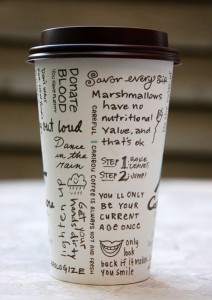 Savor every sip
Marshmallows
have no
nutritional
value, and
that's ok
DONATE
BLOOD
CAREFUL,
CARIBOU COFFEE IS ALWAYS HOT AND FRESH
out loud
Dance
in the
rain
STEP 1: RAKE
LEAVES
STEP 2: JUMP!
lighten up
Get your
hands dirty
YOU'LL ONLY
BE YOUR
CURRENT
AGE ONCE
only
look
back if it makes
you smile